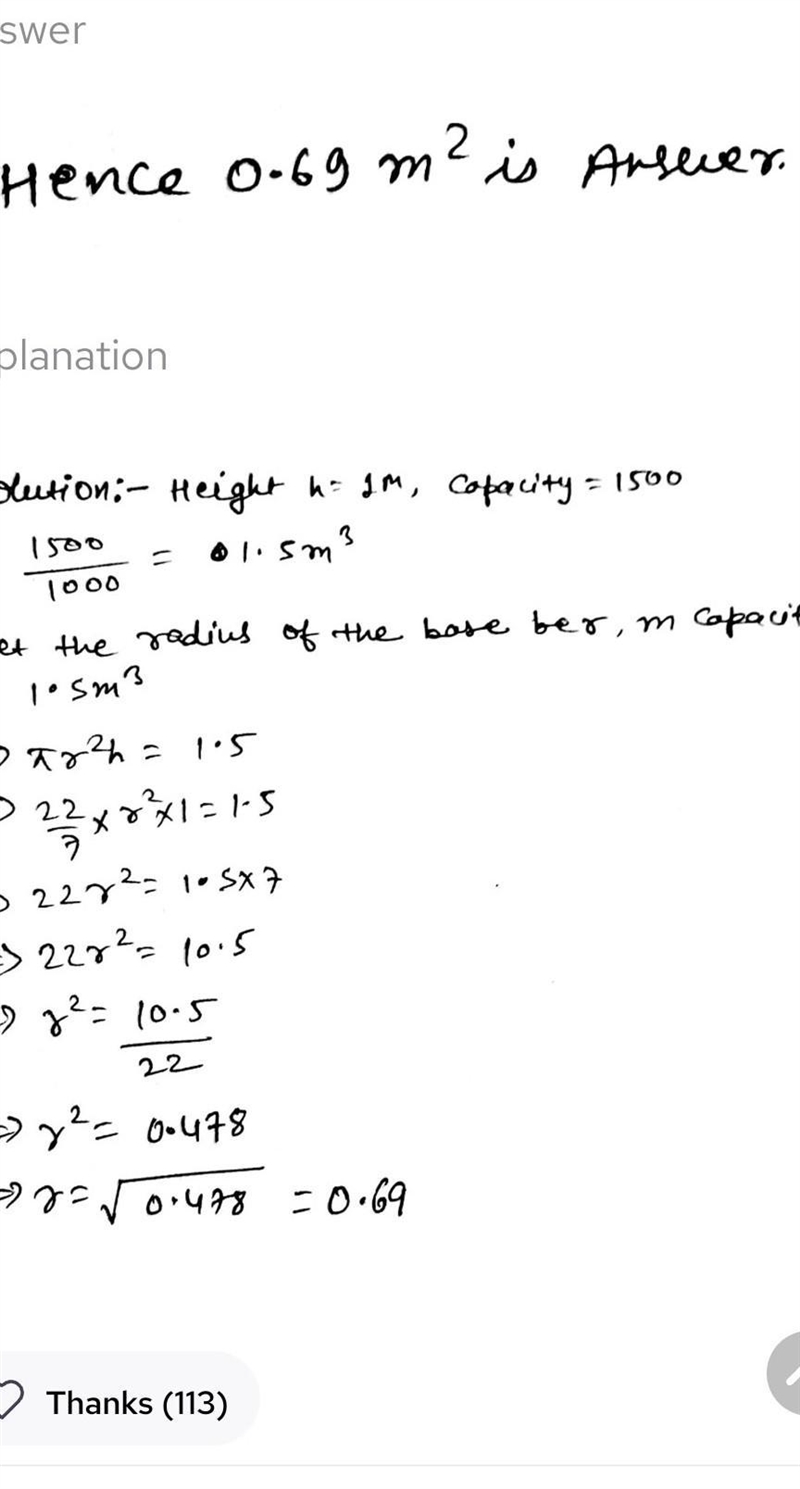 swer
Hence 0.69 m² is Answer.
planation
olution:- Height h= 1M, Capacity = 1500
1500/1000 = 1.5m³
et the radius of the base ber, m Capacit
1.5m³
πr²h = 1.5
22/7 × r²×1 = 1.5
22r² = 1.5×7
⇒ 22r² = 10.5
⇒ r² = 10.5/22
⇒ r² = 0.478
⇒ r = √0.478 = 0.69
Thanks (113)